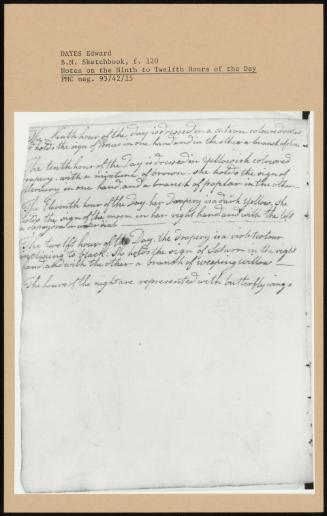 DAYES Edward
B.M. Sketchbook, f. 120
Notes on the Ninth to Twelfth Hours of the Day
PMC neg. 93/42/15
The Ninth hour of the day is dressed in a citron coloured
holds the sign of Venus in one hand and in the other a branch of
The tenth hour of the Day is dressed in yellowish coloured
drapery, with a mixture of brown. she holds the sign of
Mercury in one hand and a branch of poplar in the other.
The Eleventh hour of the Day her Drapery is a dark Yellow, She
holds the sign of the moon in her right hand and with the left
a
The twelfth hour of the Day. the drapery is a violet colour
inclining to black. She holds the sign of Saturn in the right
hand and with the other a branch of weeping willow
The hours of the night are represented with butterfly wings